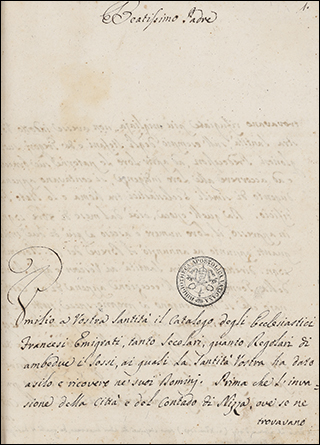 1.
Beatissimo Padre
Umilio a Vostra Santità il Catalogo degli Ecclesiastici
Francesi Emigrati, tanto Secolari, quanto Regolari di
ambedue i Sessi, ai quali la Santità Vostra ha dato
asilo e ricovero ne' suoi Dominj. Prima che l'inva-
sione della Città e del Contado di Nizza, ove se ne
trovavano